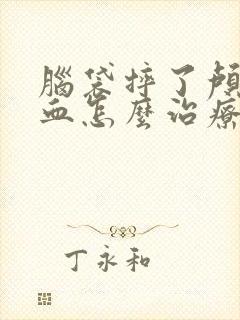 腦袋摔了顱
血怎麼治療
丁永和